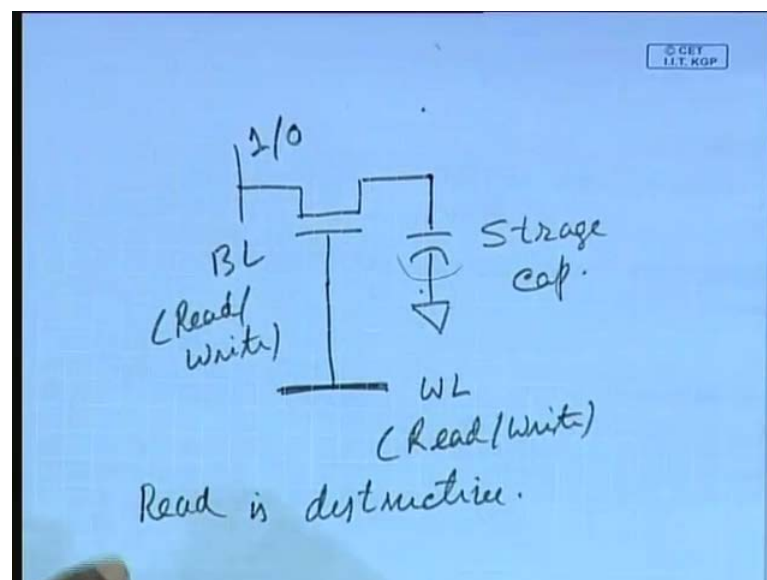 © CET
I.I.T. KGP
1/0
BL
(Read/
Write)
Strage
cap.
WL
(Read/Write)
Read is dstructive.